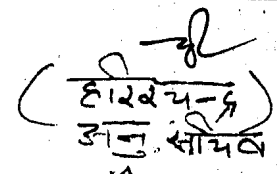 (हरिश्चन्द्र)
अनु. सचिव